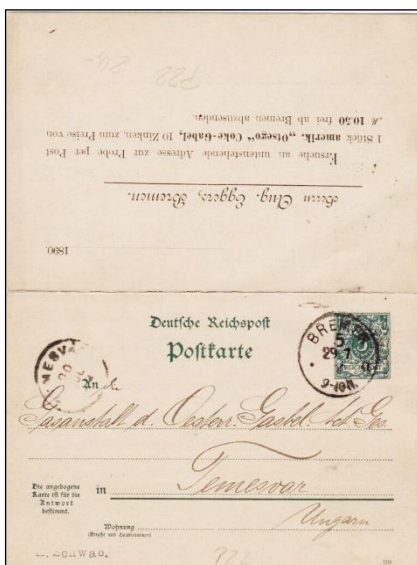 P22
20,-
Herrn Aug. Eggers, Bremen.
1890.
Ersuche an untenstehende Adresse zur Probe per Post
1 Stück amerik. „Otsego“ Coke-Gabel, 10 Zinken, zum Preise von
M 10.50 frei ab Bremen abzusenden.
Deutsche Reichspost
Postkarte
BREMEN
5
29. 7
9-10N.
An
Gasanstalt d. Oesterr. Gasbel. Act. Ges.
Die angebogene
Karte ist für die
Antwort
bestimmt.
in Temesvar
Ungarn
Wohnung
(Straße und Hausnummer)
L. Schwab.
P22